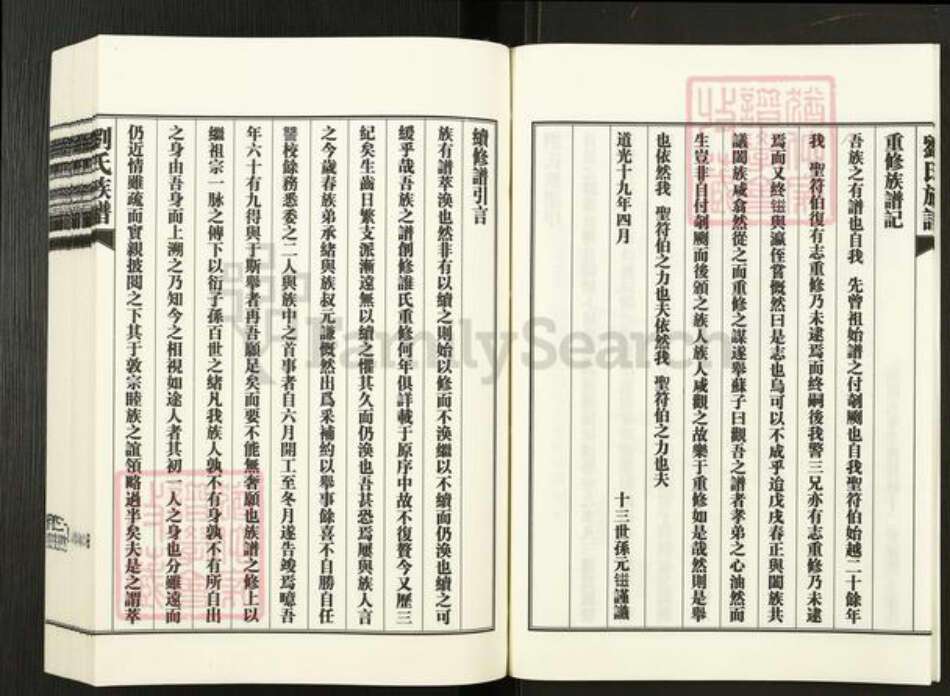 劉氏族譜
重修族譜記
吾族之有譜也自我 先曾祖始譜之付剞劂也自我聖符伯始越二十餘年
我 聖符伯復有志重修乃未逮焉而終嗣後我警三兄亦有志重修乃未逮
焉而又終 與瀛侄嘗慨然曰是志也烏可以不成乎迨戊戌春正與闔族共
議闔族咸翕然從之而重修之謀遂舉蘇子曰觀吾之譜者孝弟之心油然而
生豈非自付剞劂而後頒之族人族人咸觀之故樂于重修如是哉然則是舉
也依然我 聖符伯之力也夫依然我 聖符伯之力也夫
道光十九年四月
十三世孫元 謹識
續修譜引言
族有譜萃渙也然非有以續之則始以修而不渙繼以不續而仍渙也續之可
緩乎哉吾族之譜創修誰氏重修何年俱詳載于原序中故不復贅今又歷三
紀矣生齒日繁支派漸遠無以續之懼其久而仍渙也吾甚恐焉屢與族人言
之今歲春族弟承緒與族叔元謙慨然出爲釆補約以舉事餘喜不自勝自任
讐校餘務悉委之二人與族中之首事者自六月開工至冬月遂告竣焉噫吾
年六十有九得與于斯舉者再吾願足矣而要不能無奢願也族譜之修上以
繼祖宗一脉之傳下以衍子孫百世之緒凡我族人孰不有身孰不有所自出
之身由吾身而上溯之乃知今之相視如途人者其初一人之身也分雖遠而
仍近情雖疏而實親披閱之下其于敦宗睦族之誼領略過半矣夫是之謂萃
劉氏族譜
FamilySearch